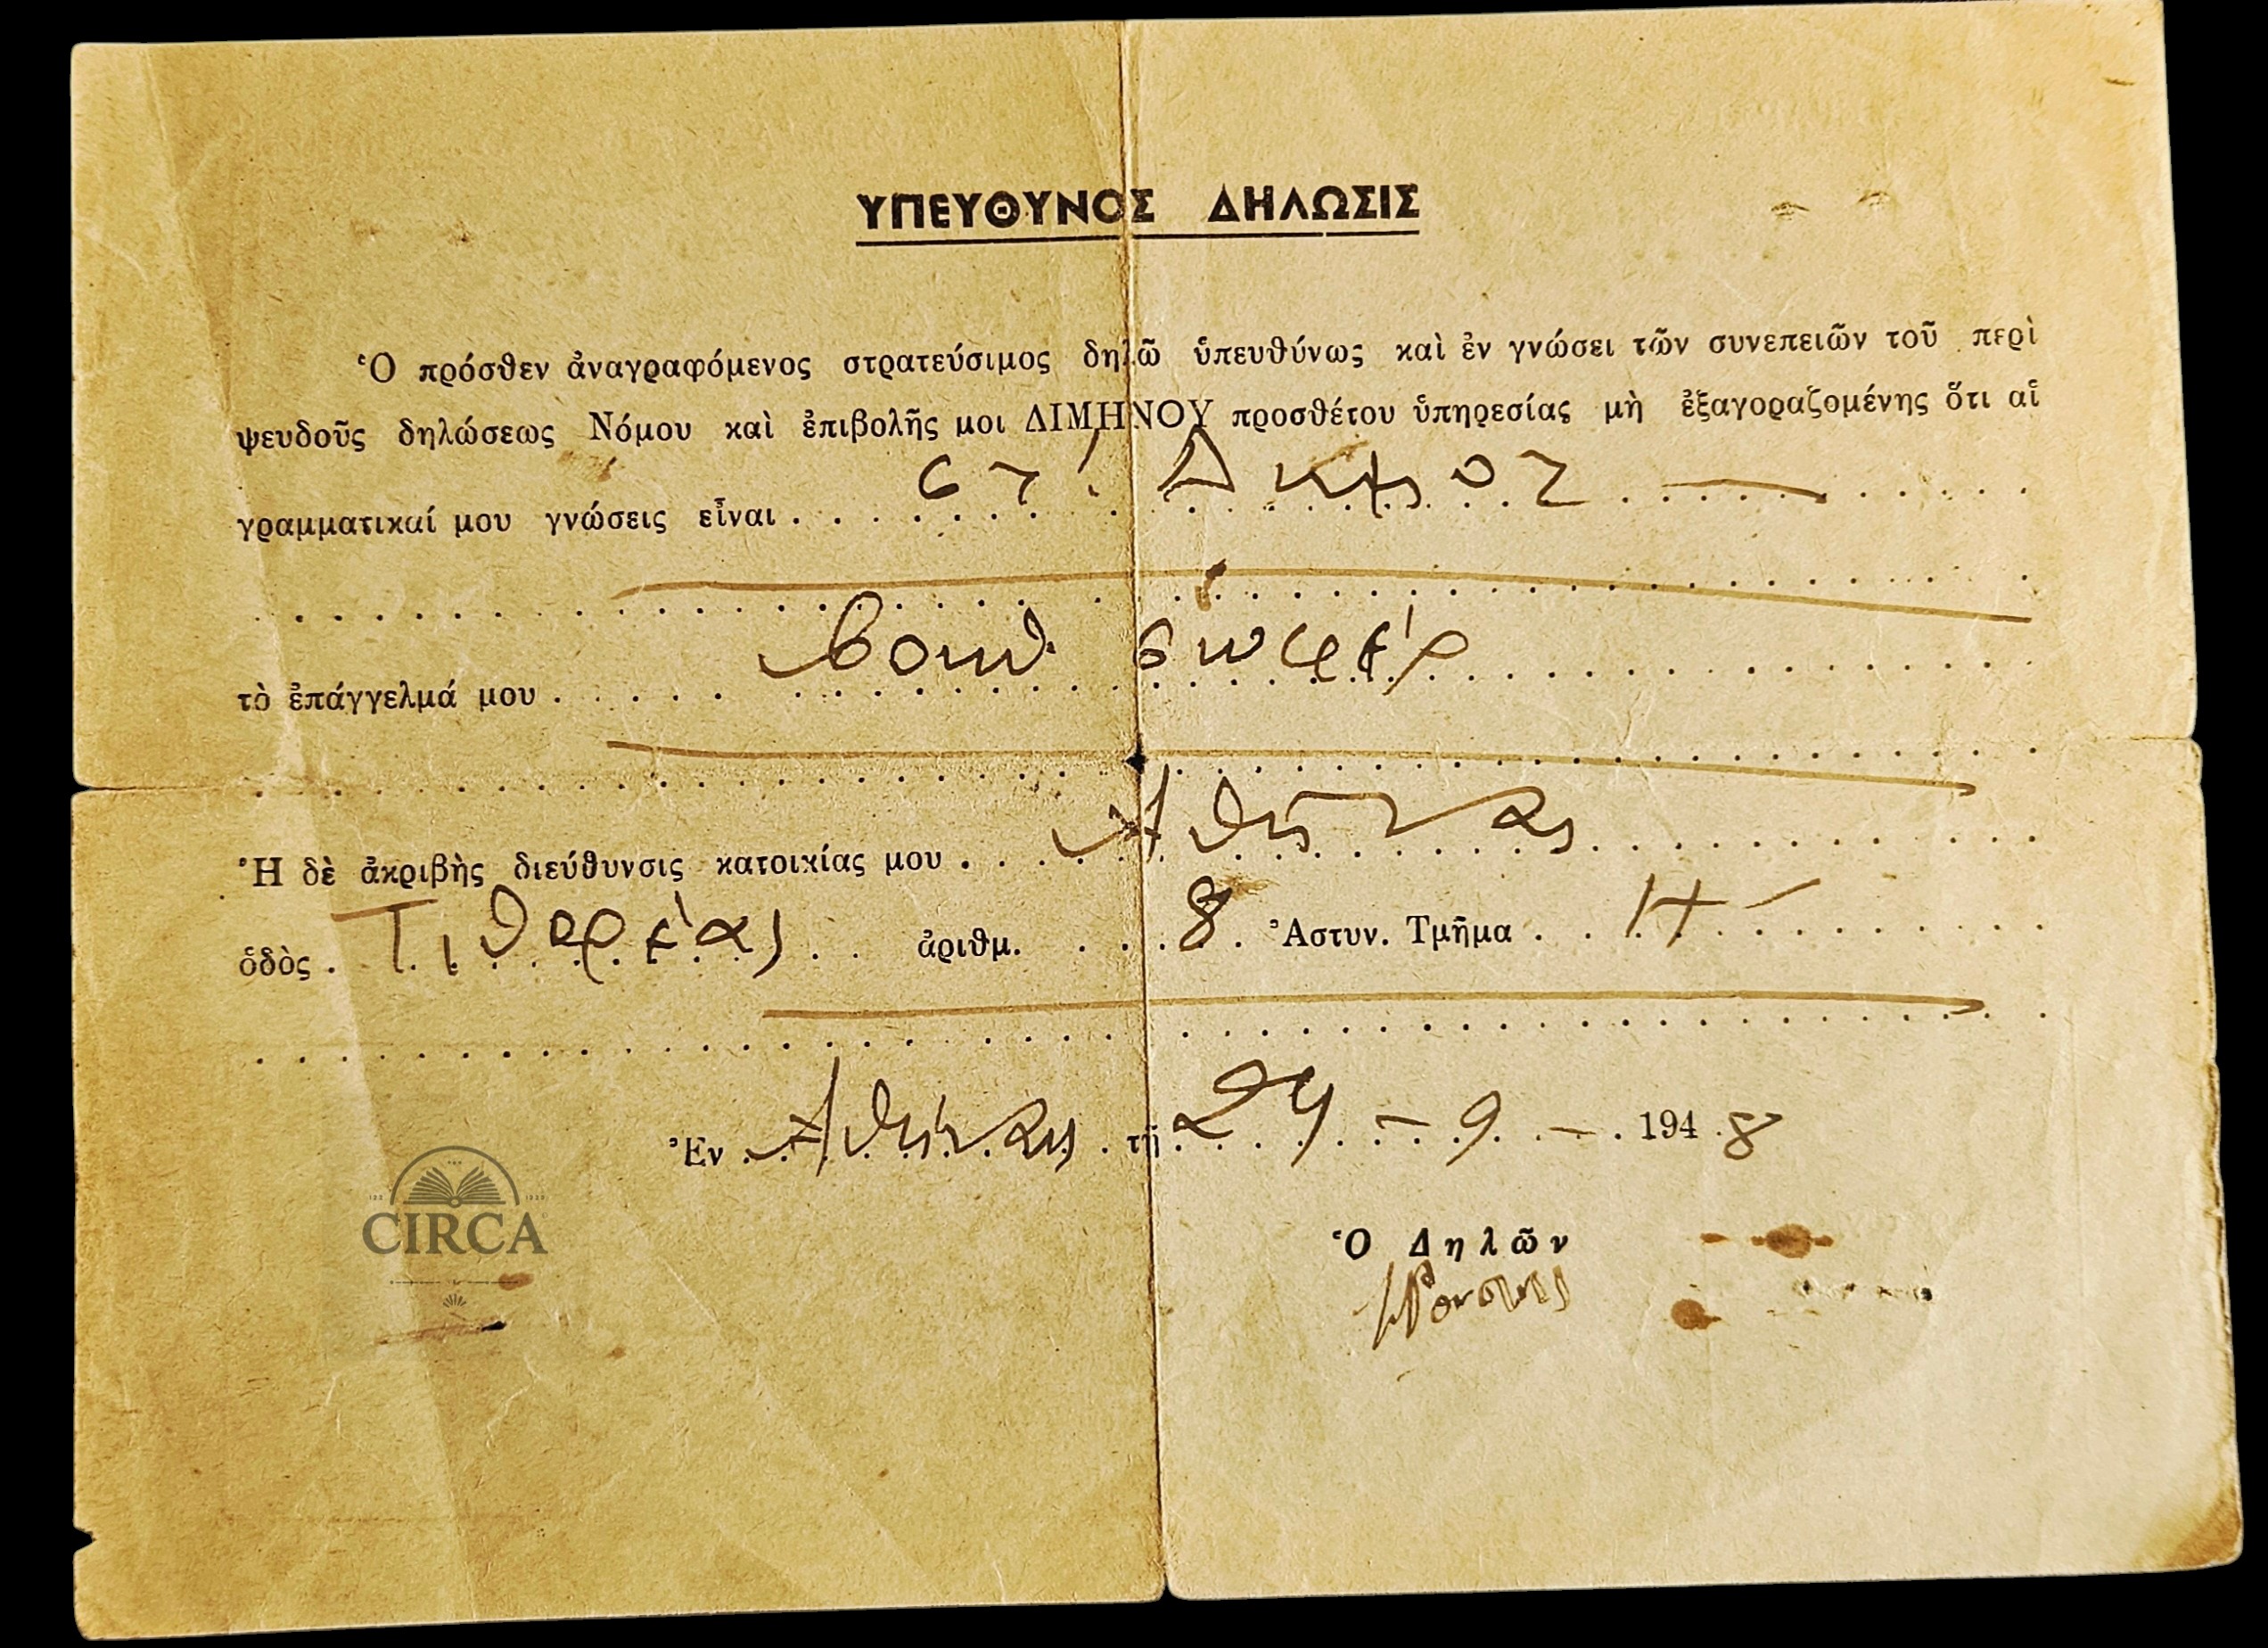 ΥΠΕΥΘΥΝΟΣ ΔΗΛΩΣΙΣ
Ὁ πρόσθεν ἀναγραφόμενος στρατεύσιμος δηλῶ ὑπευθύνως καὶ ἐν γνώσει τῶν συνεπειῶν τοῦ περὶ
ψευδοῦς δηλώσεως Νόμου καὶ ἐπιβολῆς μοι ΔΙΜΗΝΟΥ προσθέτου ὑπηρεσίας μὴ ἐξαγοραζομένης ὅτι αἱ
γραμματικαί μου γνώσεις εἶναι
τὸ ἐπάγγελμά μου
Ἡ δὲ ἀκριβὴς διεύθυνσις κατοικίας μου Ἀθήνας
ὁδὸς Τιθορέας ἀριθμ. 8 Ἀστυν. Τμῆμα
Ἐν Ἀθήναις τῇ 24 - 9 - 1948
Ὁ Δηλῶν
CIRCA